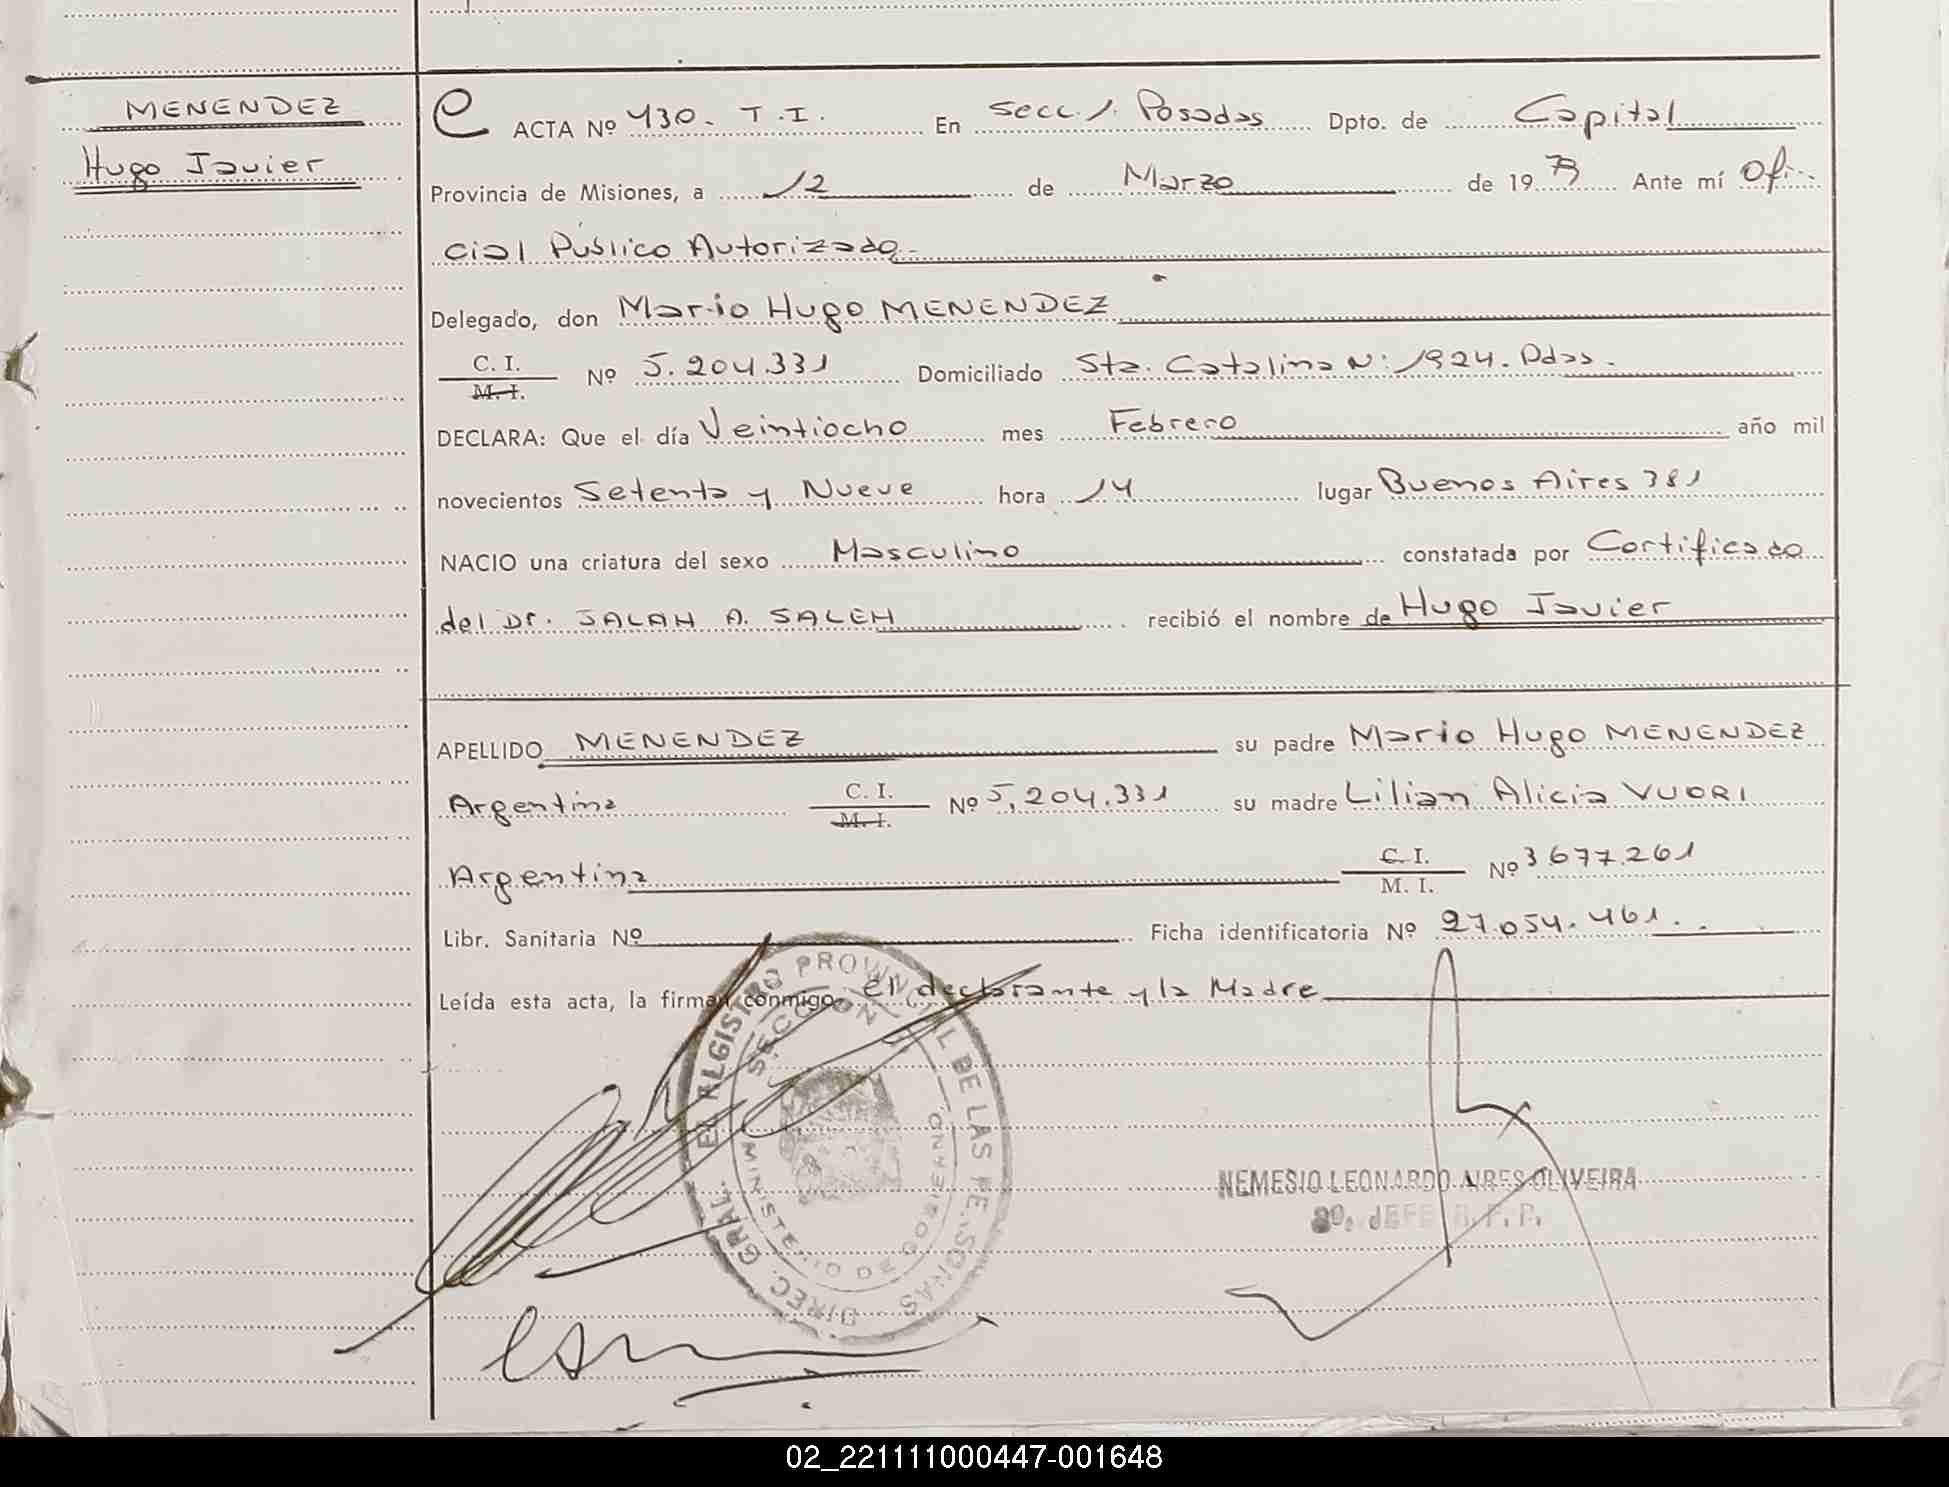 MENENDEZ
Hugo Javier
ACTA Nº 430. T.I. En Secc. 1. Posadas Dpto. de Capital
Provincia de Misiones, a 12 de Marzo de 19 79 Ante mí Ofi-
cial Público Autorizado.-
Delegado, don Mario Hugo MENENDEZ
C. I.
M. I.
Nº 5.204.331 Domiciliado Sta. Catalina Nº 1924. Pdas.
DECLARA: Que el día Veintiocho mes Febrero año mil
novecientos Setenta y Nueve hora 14 lugar Buenos Aires 381
NACIO una criatura del sexo Masculino constatada por Certificado
del Dr. JALAH A. SALEH recibió el nombre de Hugo Javier
APELLIDO MENENDEZ su padre Mario Hugo MENENDEZ
Argentina C. I. Nº 5,204.331 su madre Lilian Alicia VUORI
M. I.
Argentina C. I. Nº 3677.261
M. I.
Libr. Sanitaria Nº Ficha identificatoria Nº 27.054.461.
Leída esta acta, la firman conmigo el declarante y la Madre
DIREC. GRAL. DE LAS PERSONAS
SECCION
MINISTERIO DE GOBIERNO
NEMESIO LEONARDO AIRES OLIVEIRA
JEFE R. P. P.
02_221111000447-001648